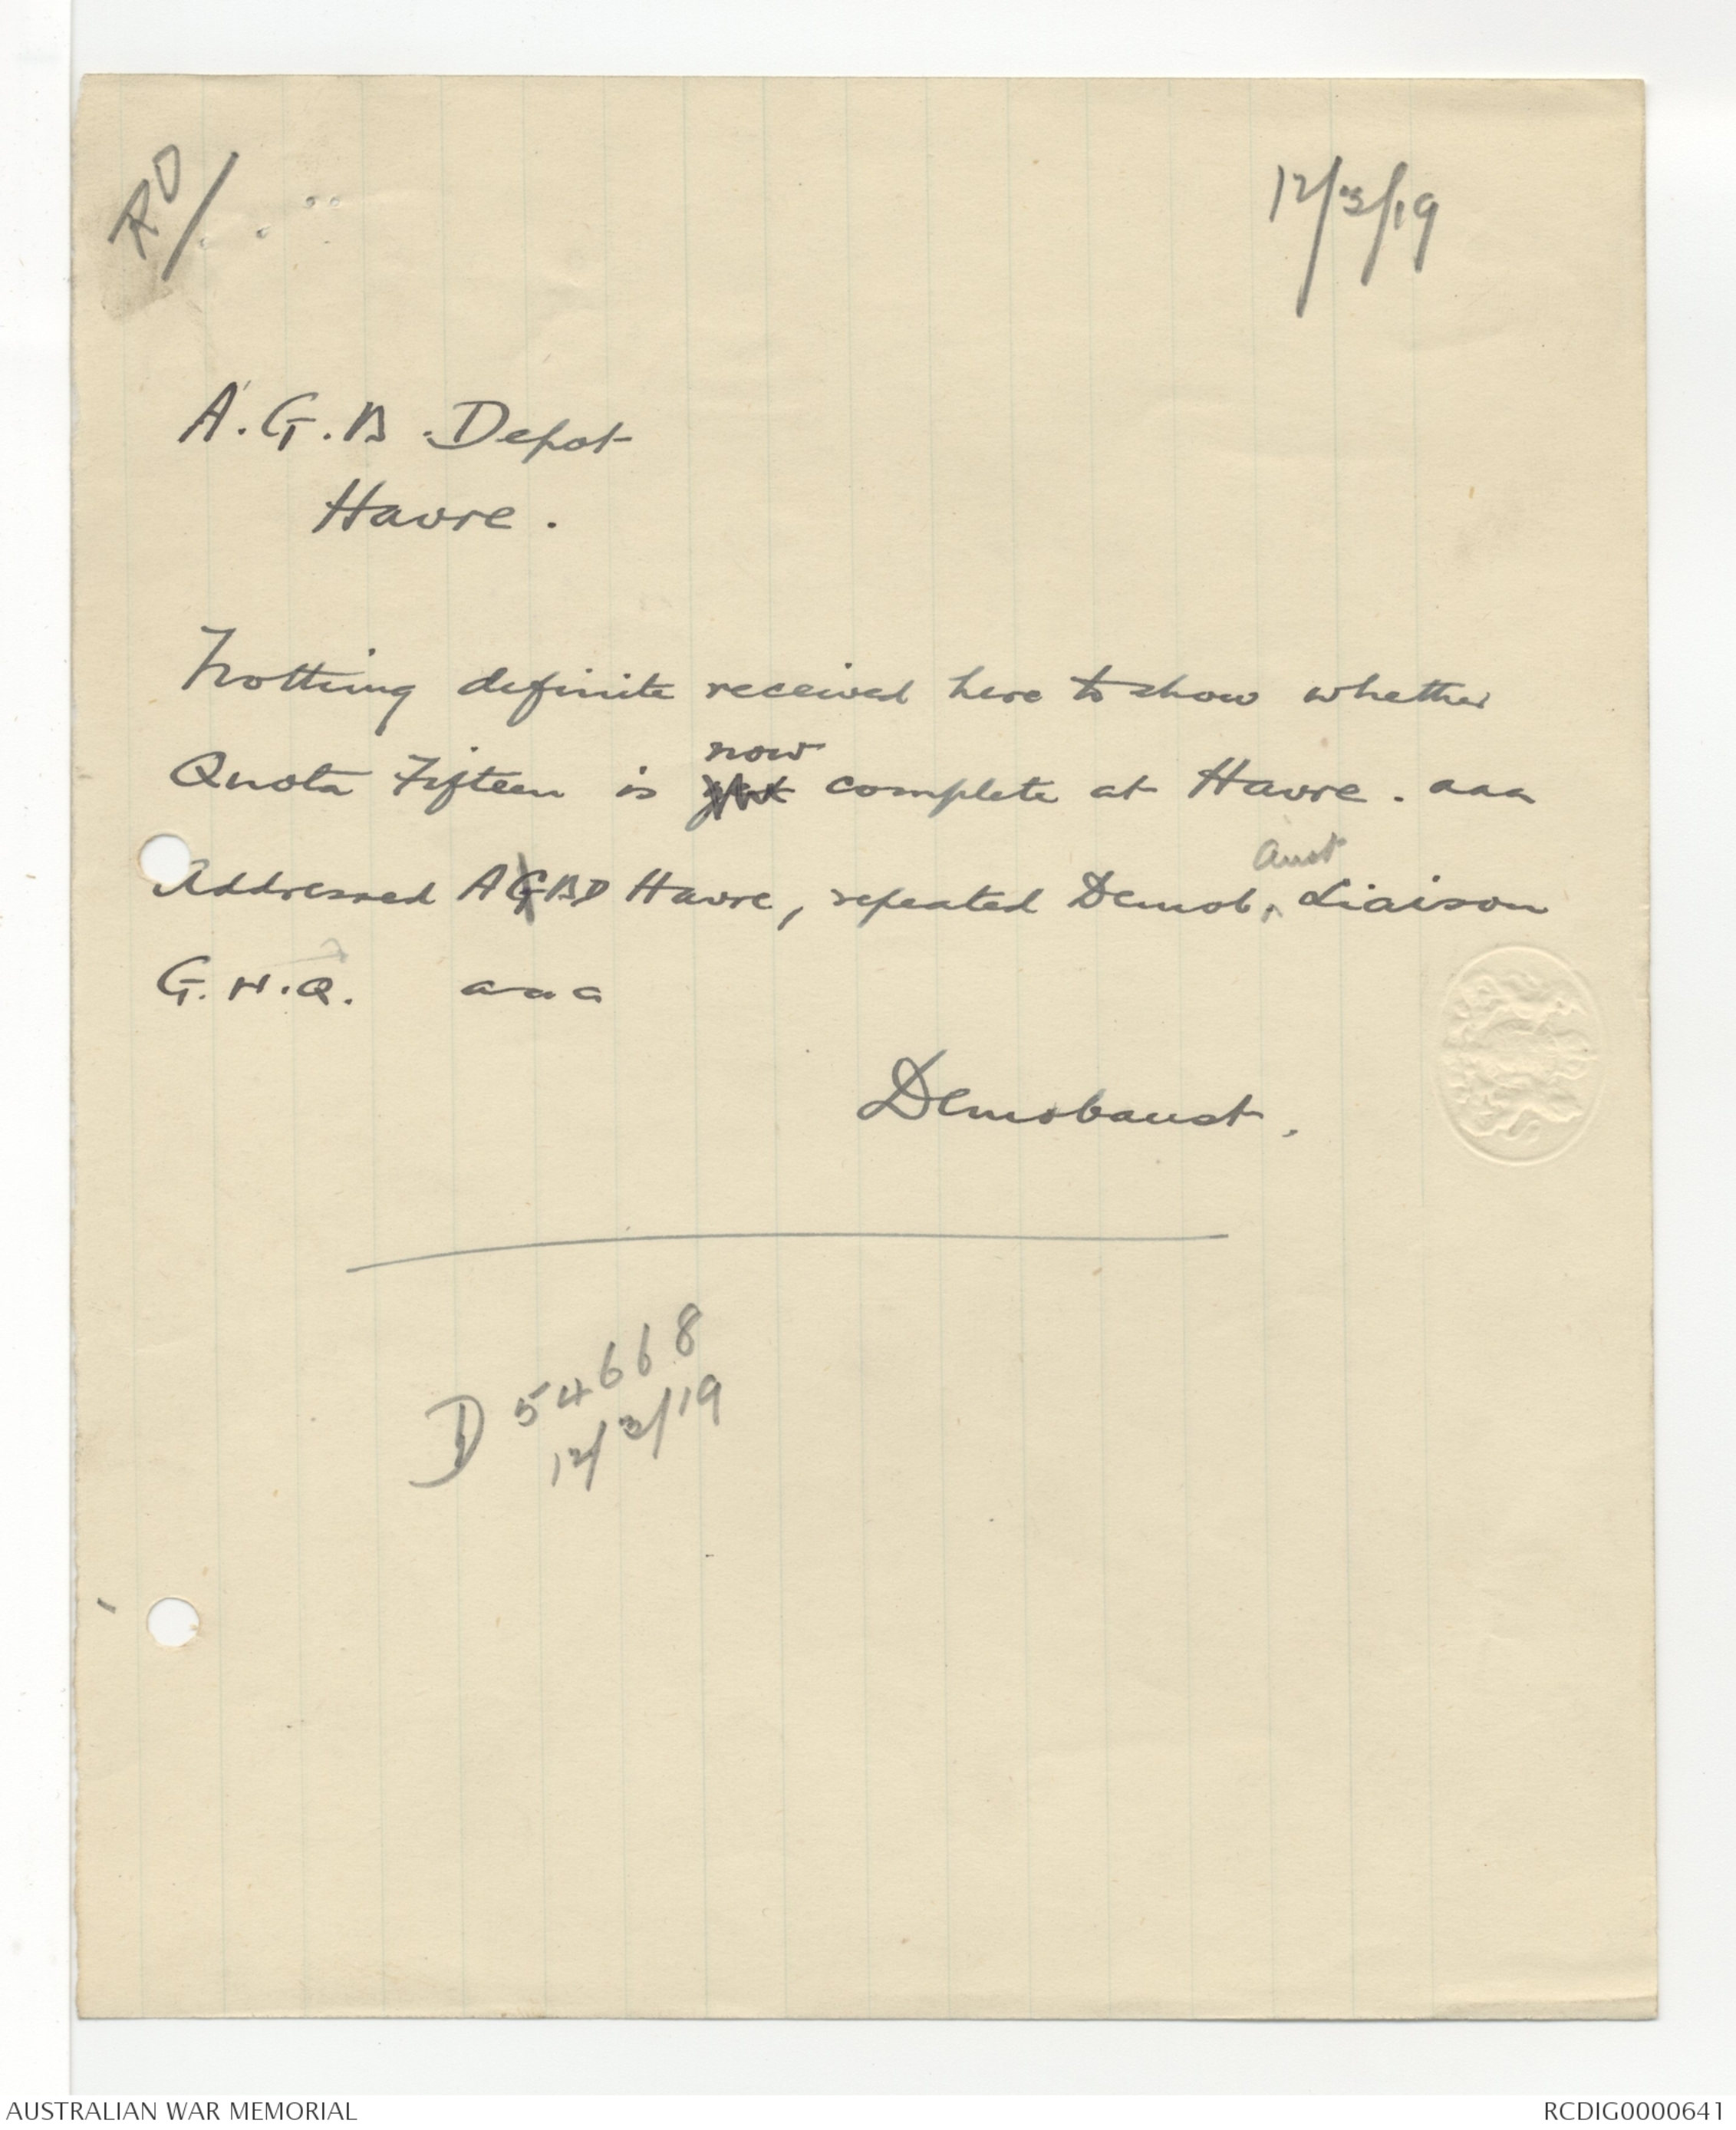 RO/
12/3/19
A.G.B. Depot
Havre.
Notting definite received here to show whether
Quota Fifteen is now complete at Havre. aaa
Addressed AGBD Havre, repeated Demob, Aust Liaison
G.H.Q. aaa
Demobaust.
D 54668
12/3/19
AUSTRALIAN WAR MEMORIAL
RCDIG0000641